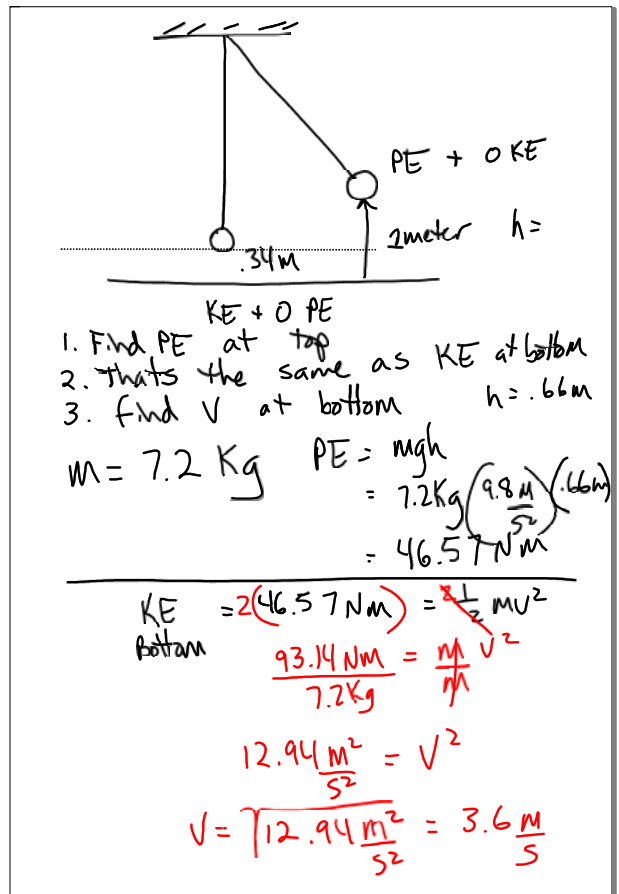 PE + 0 KE
1meter h=
.34m
KE + 0 PE
1. Find PE at top
2. Thats the same as KE at bottom
3. find V at bottom h=.66m
m = 7.2 Kg PE = mgh
= 7.2Kg (9.8 M/S²)(.66m)
= 46.57 Nm
KE Bottom = 2(46.57 Nm) = 2 1/2 mv²
93.14 Nm / 7.2Kg = m/m v²
12.94 m²/s² = V²
V = √12.94 m²/s² = 3.6 M/S